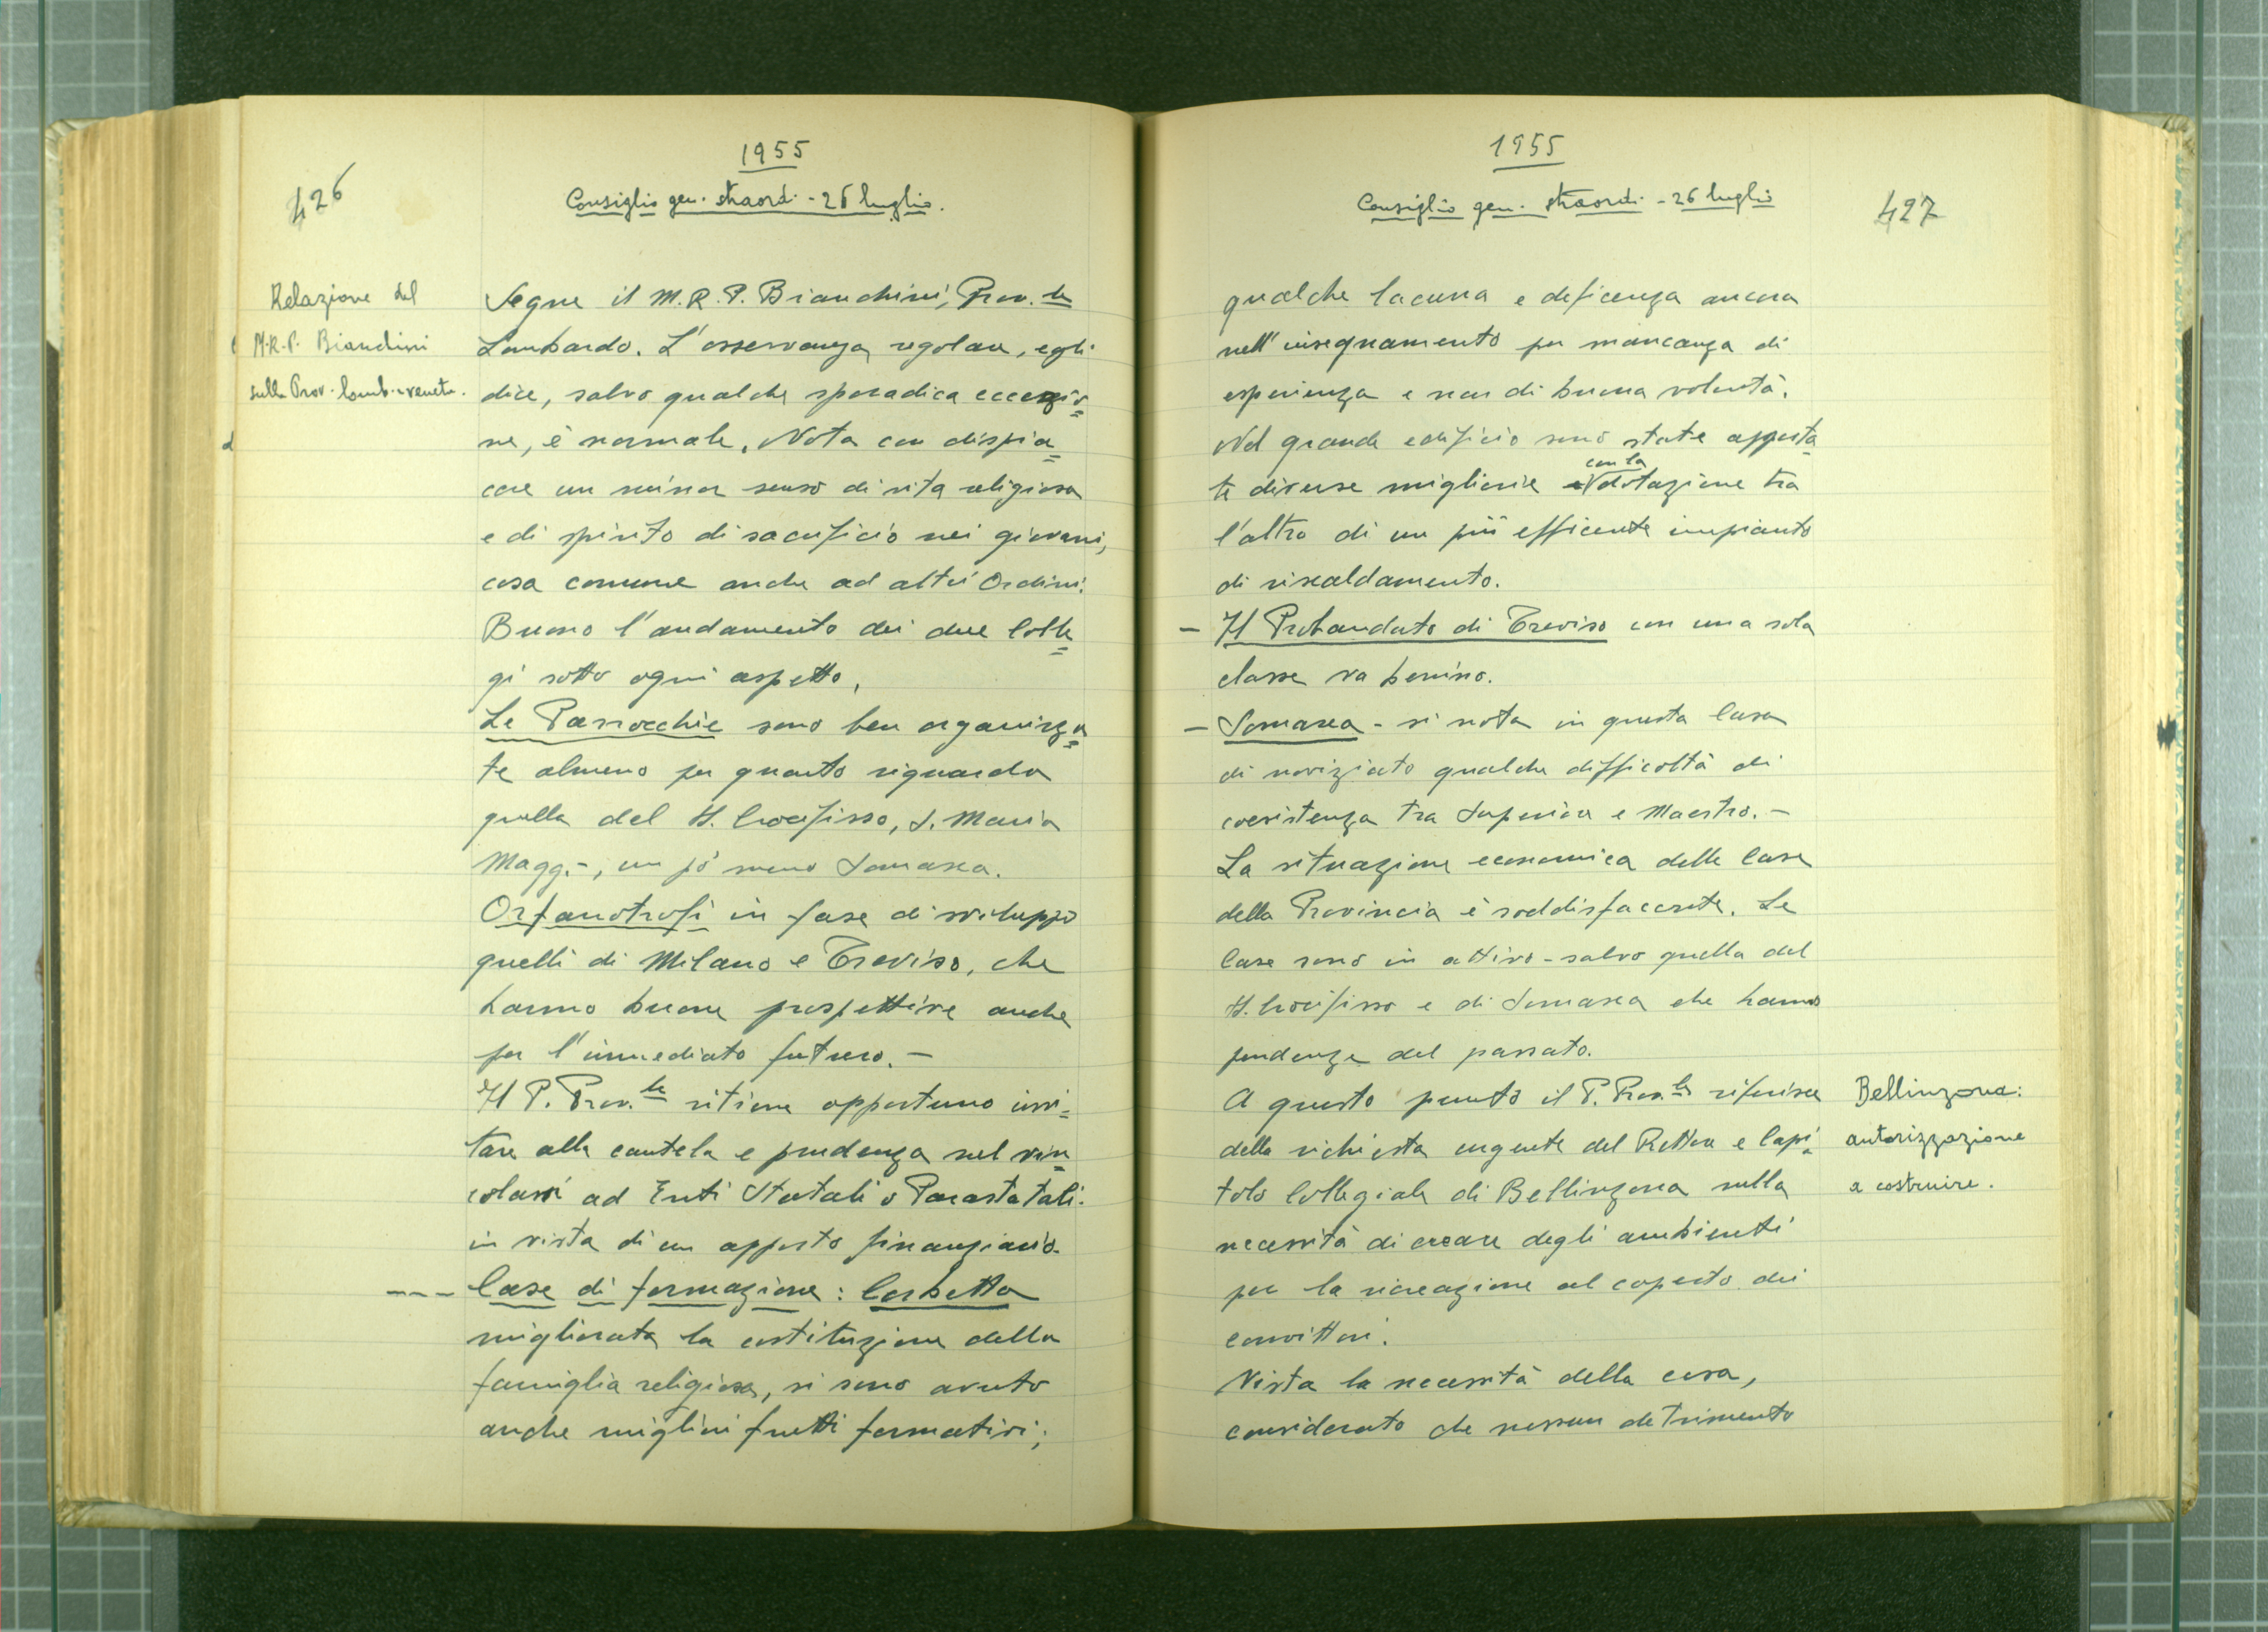 426
1955
Consiglio gen. straord. - 26 luglio.
Relazione del
M.R.P. Bianchini
sulla Prov. lomb. veneta.
Segue il M.R.P. Bianchini, Prov.le
Lombardo. L'osservanza regolare, egli
dice, salvo qualche sporadica eccezio=
ne, è normale. Nota con dispia=
cere un minor senso di vita religiosa
e di spirito di sacrificio nei giovani,
cosa comune anche ad altri Ordini.
Buono l'andamento dei due Colle=
gi sotto ogni aspetto.
Le Parrocchie sono ben organizza=
te almeno per quanto riguarda
quella del SS. Crocifisso, S. Maria
Magg.-, un pò meno Somasca.
Orfanotrofi in fase di sviluppo
quelli di Milano e Treviso, che
hanno buone prospettive anche
per l'immediato futuro. -
Il P. Prov.le ritiene opportuno invi=
tare alla cautela e prudenza nel vin=
colarsi ad Enti Statali o Parastatali.
in vista di un apporto finanziario.
--- Case di formazione: Corbetta
migliorata la costituzione della
famiglia religiosa, si sono avuto
anche migliori frutti formativi;
1955
Consiglio gen. straord. - 26 luglio
427
qualche lacuna e deficenza ancora
nell'insegnamento per mancanza di
esperienza e non di buona volontà.
Nel grande edificio sono state apporta=
te diverse migliorie con la dotazione tra
l'altro di un più efficente impianto
di riscaldamento.
- Il Probandato di Treviso con una sola
classe va benino.
- Somasca - si nota in questa Casa
di noviziato qualche difficoltà di
coesistenza tra Superiore e Maestro. -
La situazione economica delle Case
della Provincia è soddisfacente. Le
Case sono in attivo - salvo quella del
SS. Crocifisso e di Somasca che hanno
pendenze del passato.
A questo punto il P. Prov.le riferisce
della richiesta urgente del Rettore e Capi=
tolo Collegiale di Bellinzona sulla
necessità di creare degli ambienti
per la ricreazione al coperto dei
convittori.
Vista la necessità della cosa,
considerato che nessun detrimento
Bellinzona:
autorizzazione
a costruire.